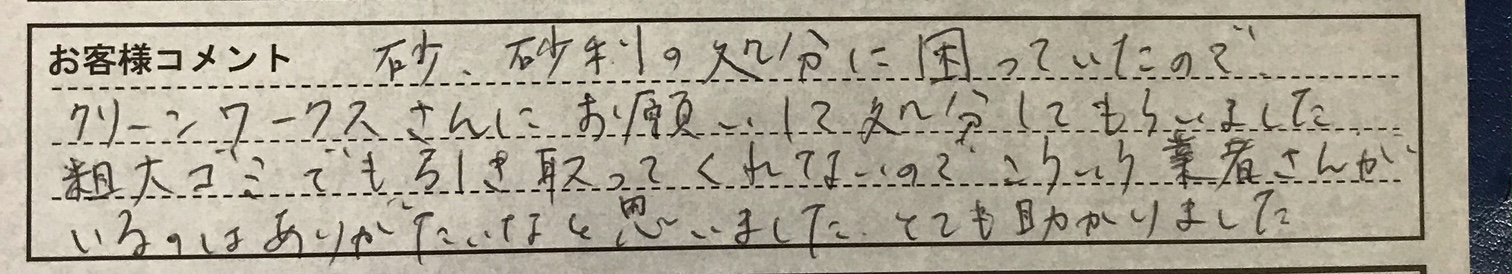 お客様コメント 砂、砂利の処分に困っていたので、
クリーンワークスさんにお願いして処分してもらいました
粗大ゴミでも引き取ってくれてないのでこういう業者さんが
いるのはありがたいなと思いました。とても助かりました